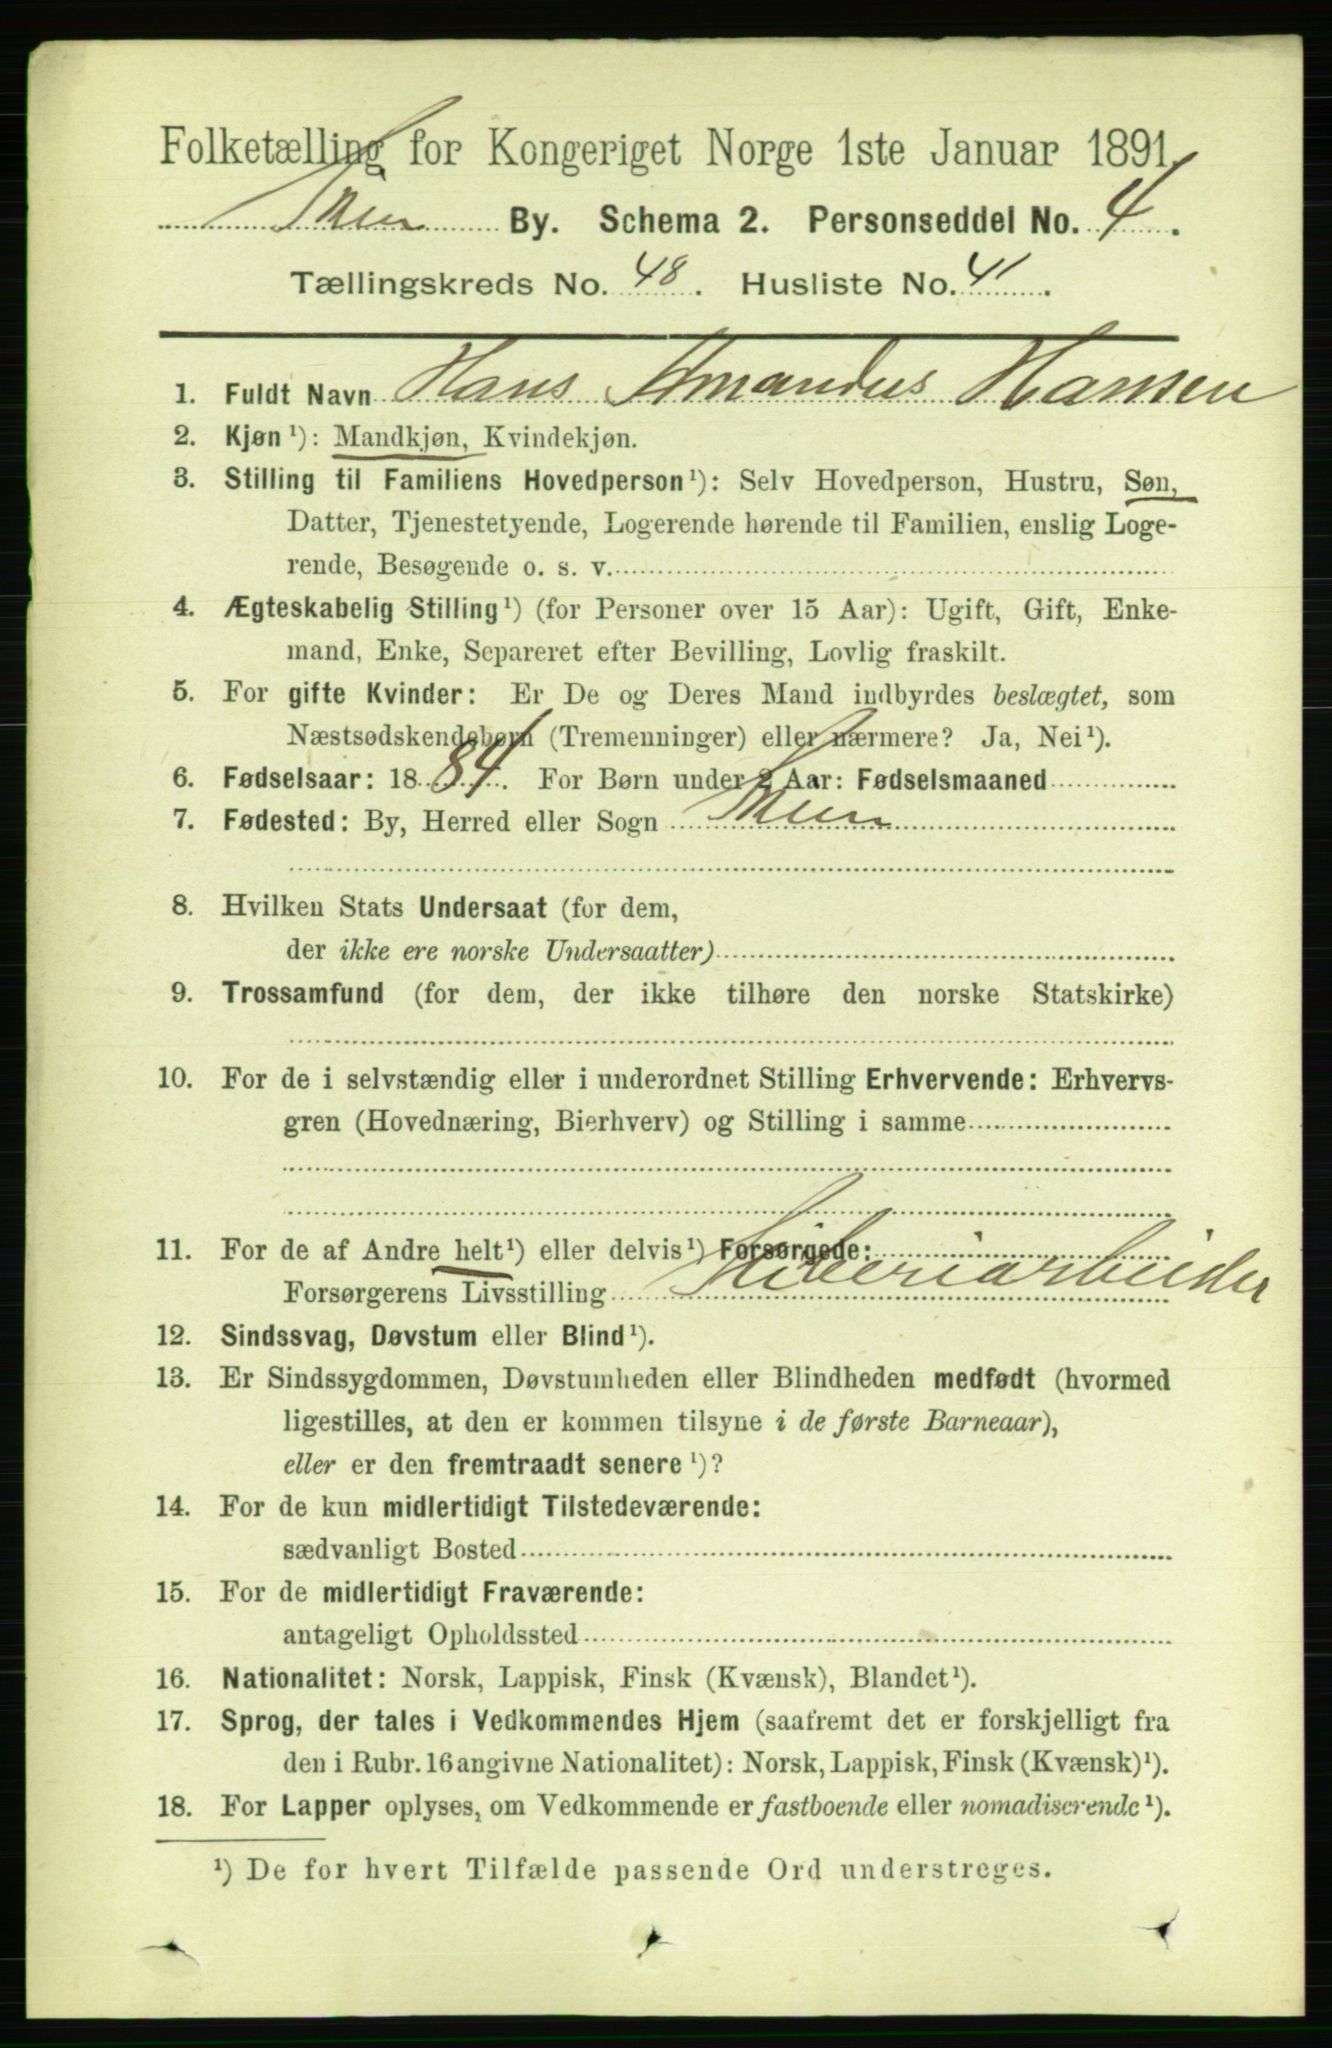 Folketælling for Kongeriget Norge 1ste Januar 1891.
Skien By. Schema 2. Personseddel No. 4.
Tællingskreds No. 48. Husliste No. 41.
1. Fuldt Navn Hans Amandus Hansen
2. Kjøn¹): Mandkjøn, Kvindekjøn.
3. Stilling til Familiens Hovedperson¹): Selv Hovedperson, Hustru, Søn,
Datter, Tjenestetyende, Logerende hørende til Familien, enslig Loge-
rende, Besøgende o. s. v.
4. Ægteskabelig Stilling¹) (for Personer over 15 Aar): Ugift, Gift, Enke-
mand, Enke, Separeret efter Bevilling, Lovlig fraskilt.
5. For gifte Kvinder: Er De og Deres Mand indbyrdes beslægtet, som
Næstsødskendebørn (Tremenninger) eller nærmere? Ja, Nei¹).
6. Fødselsaar: 1884. For Børn under 2 Aar: Fødselsmaaned
7. Fødested: By, Herred eller Sogn Skien
8. Hvilken Stats Undersaat (for dem,
der ikke ere norske Undersaatter)
9. Trossamfund (for dem, der ikke tilhøre den norske Statskirke)
10. For de i selvstændig eller i underordnet Stilling Erhvervende: Erhvervs-
gren (Hovednæring, Bierhverv) og Stilling i samme
11. For de af Andre helt¹) eller delvis¹) Forsørgede:
Forsørgerens Livsstilling Sliberiarbeider
12. Sindssvag, Døvstum eller Blind¹).
13. Er Sindssygdommen, Døvstumheden eller Blindheden medfødt (hvormed
ligestilles, at den er kommen tilsyne i de første Barneaar),
eller er den fremtraadt senere¹)?
14. For de kun midlertidigt Tilstedeværende:
sædvanligt Bosted
15. For de midlertidigt Fraværende:
antageligt Opholdssted
16. Nationalitet: Norsk, Lappisk, Finsk (Kvænsk), Blandet¹).
17. Sprog, der tales i Vedkommendes Hjem (saafremt det er forskjelligt fra
den i Rubr. 16 angivne Nationalitet): Norsk, Lappisk, Finsk (Kvænsk)¹).
18. For Lapper oplyses, om Vedkommende er fastboende eller nomadiserende¹).
¹) De for hvert Tilfælde passende Ord understreges.